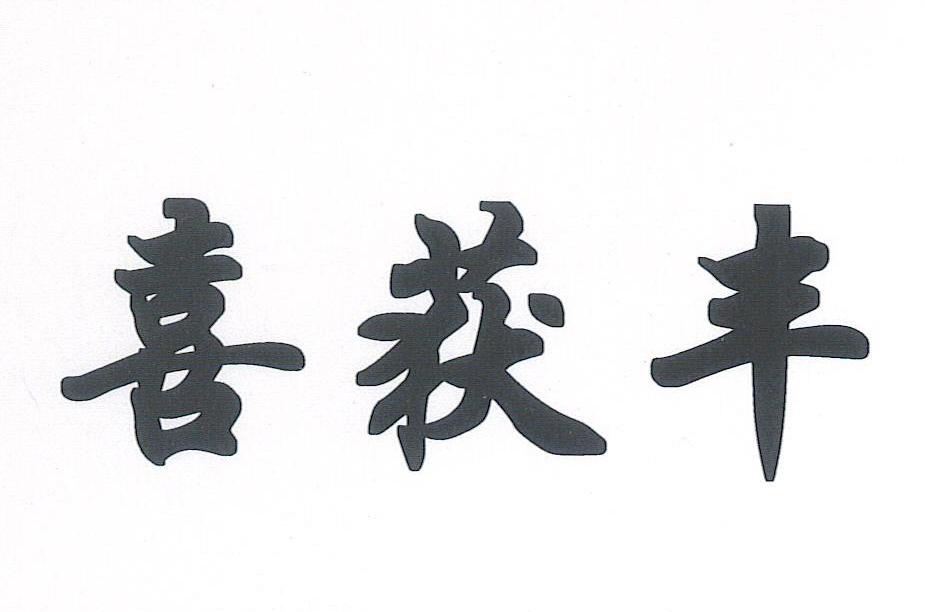 喜获丰